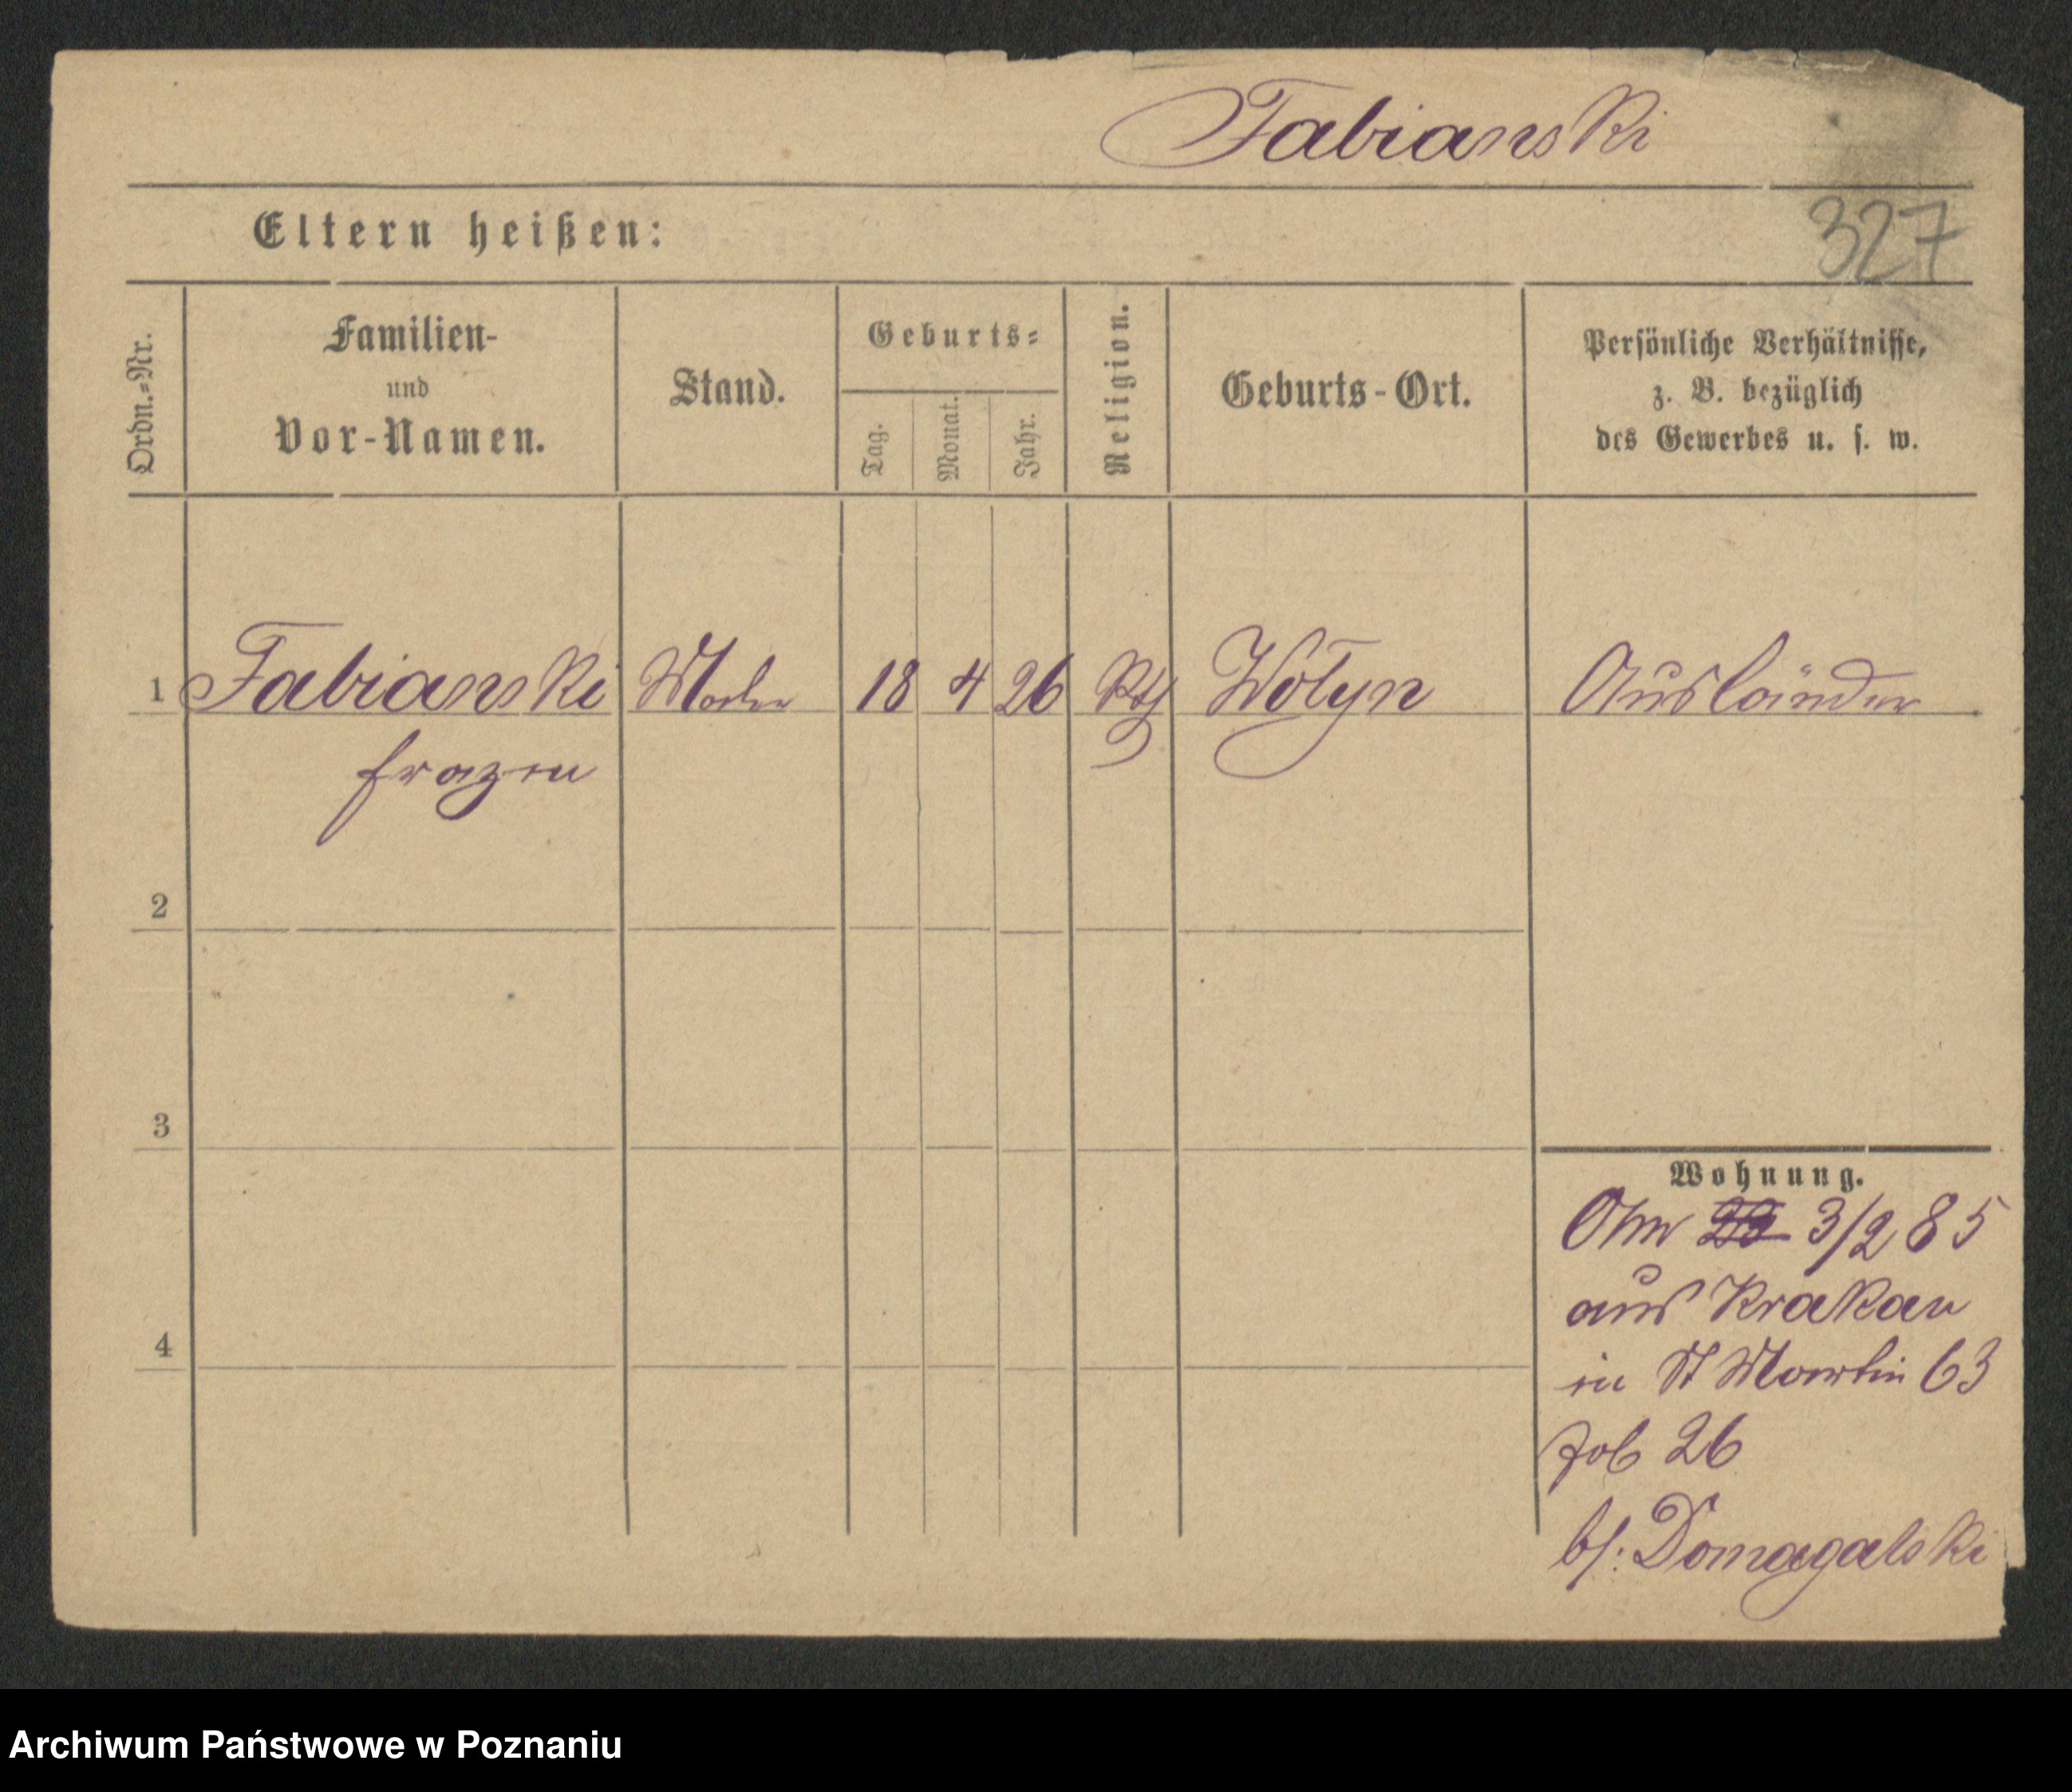 Fabianski
Eltern heißen:
327
Ordn.-Nr.
Familien-
und
Vor-Namen.
Stand.
Geburts-
Tag.
Monat.
Jahr.
Religion.
Geburts-Ort.
Persönliche Verhältnisse,
z. B. bezüglich
des Gewerbes u. s. w.
1 Fabianski Maler 18 4 26 Kth Wołyn Ausländer
2
3
4
Wohnung.
3/2 85
aus Krakau
in St Martin 63
26
b/: Domagalski
Archiwum Państwowe w Poznaniu